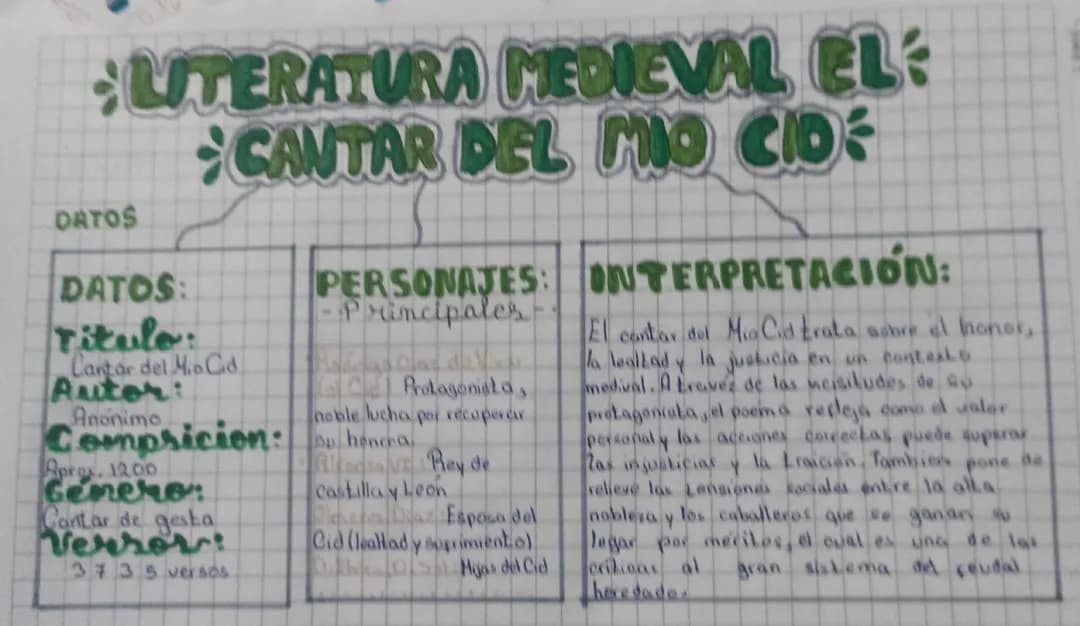 LITERATURA MEDIEVAL EL
CANTAR DEL MIO CID
DATOS
DATOS:
Titulo:
Cantar del Mio Cid
Autor:
Anónimo
Compsicion:
Aprox. 1200
Género:
Cantar de gesta
Versos:
3735 versos
PERSONAJES:
--Principales--
Rodrigo Diaz de Vivar
(el Cid) Protagonista,
noble lucha por recuperar
su honra.
Rey de
castilla y León
Esposa del
Cid (lealtad y suprimiento)
Hijas del Cid
INTERPRETACIÓN:
El cantar del Mio Cid trata sobre el honor,
la lealtad y la justicia en un contexto
medival. A travez de las de su
protagonista, el poema refleja como el valor
personal y las acciones correctas puede superar
las injusticias y la traición. Tambien pone de
relieve las tensiones sociales entre la alta
noblesa y los caballeros que se ganan su
lugar por meritos, el cual es una de las
criticas al gran sistema del feudal
heredado.